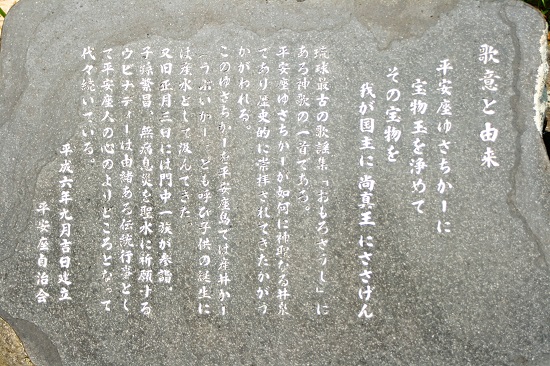 歌意と由来
平安座ゆさちかーに
宝物玉を浄めて
その宝物を
我が国主に尚真王にささけん
琉球最古の歌謡集「おもろさうし」に
ある神歌の一首である。
平安座ゆさちかーが如何に神聖なる井泉
であり歴史的に崇拝されてきたかがう
かがわれる。
このゆさちかーを平安座島では産井かー
うぶいがー とも呼び子供の誕生に
は産水として汲んできた。
又旧正月三日には門中一族が参詣、
子孫繁昌、無病息災を聖水に祈願する
ウビナディーは由緒ある伝統行事とし
て平安座人の心のよりどころとなって
代々続いている。
平成六年九月吉日建立
平安座自治会